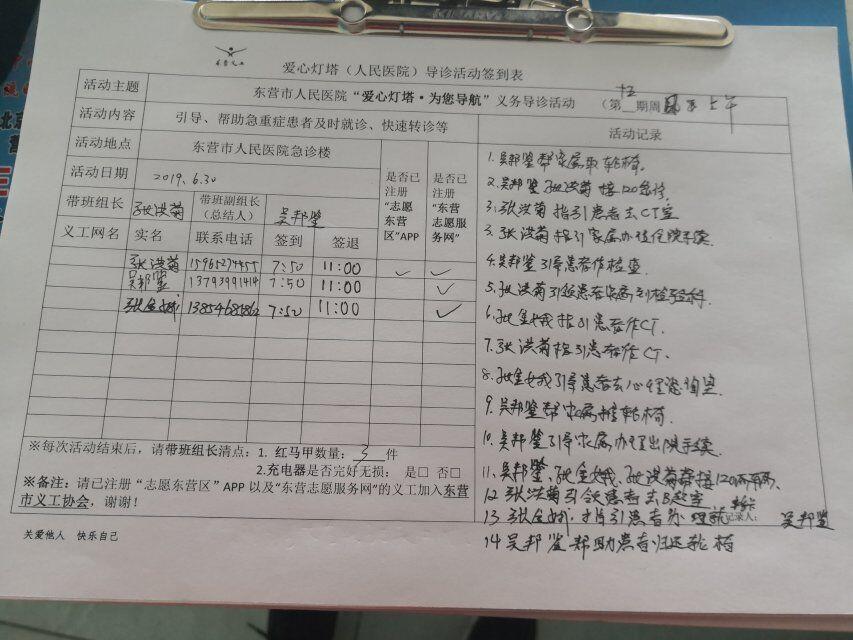 东营义工
爱心灯塔（人民医院）导诊活动签到表
活动主题 东营市人民医院“爱心灯塔·为您导航”义务导诊活动 （第 期周 上午
活动内容 引导、帮助急重症患者及时就诊、快速转诊等 活动记录
活动地点 东营市人民医院急诊楼
活动日期 2019.6.30
是否已注册“志愿东营区”APP
是否已注册“东营志愿服务网”
带班组长 张洪菊 带班副组长（总结人） 吴邦鉴
义工网名 实名 联系电话 签到 签退
张洪菊 15965274455 7:50 11:00 ✓ ✓
吴邦鉴 13793991414 7:50 11:00 ✓
7:50 11:00 ✓
1.吴邦鉴帮家属取轮椅.
2.吴邦鉴 张洪菊 接120急诊.
3.张洪菊 指引患者去CT室
3.张洪菊指引家属办住院手续.
4.吴邦鉴引导患者作检查.
5.张洪菊引 患者家属到检验科.
6. 指引患者作CT.
7.张洪菊指引患者作CT.
8. 引导患者去心理咨询室
9.吴邦鉴帮家属推轮椅.
10.吴邦鉴引导家属办理出院手续.
11.吴邦鉴, 张洪菊 接120
12 张洪菊引领患者去B超室
13 指引患者办
记录人： 吴邦鉴
14 吴邦鉴帮助患者归还轮椅
※每次活动结束后，请带班组长清点：1. 红马甲数量：3 件
2.充电器是否完好无损： 是□ 否□
※备注：请已注册“志愿东营区”APP 以及“东营志愿服务网”的义工加入东营
市义工协会，谢谢！
关爱他人 快乐自己